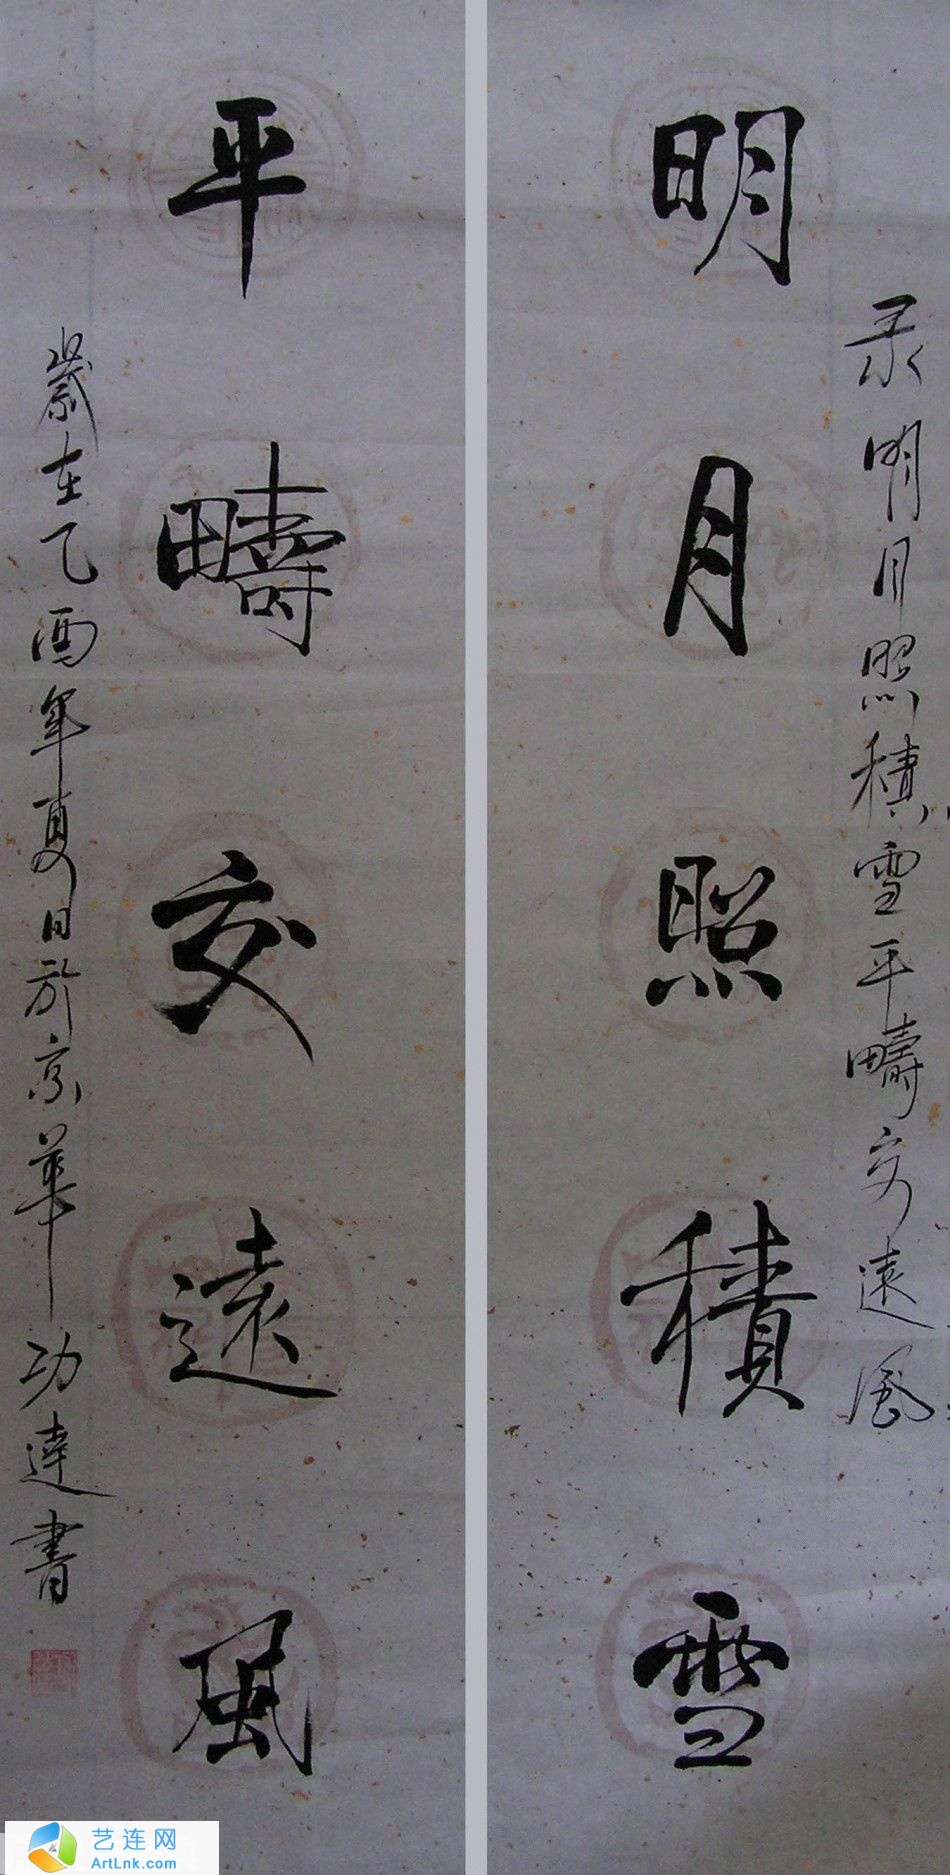 录明月照積雪平疇交遠風
明月照積雪
平疇交遠風
歲在乙酉年夏日於京華功達書
艺连网
ArtLnk.com